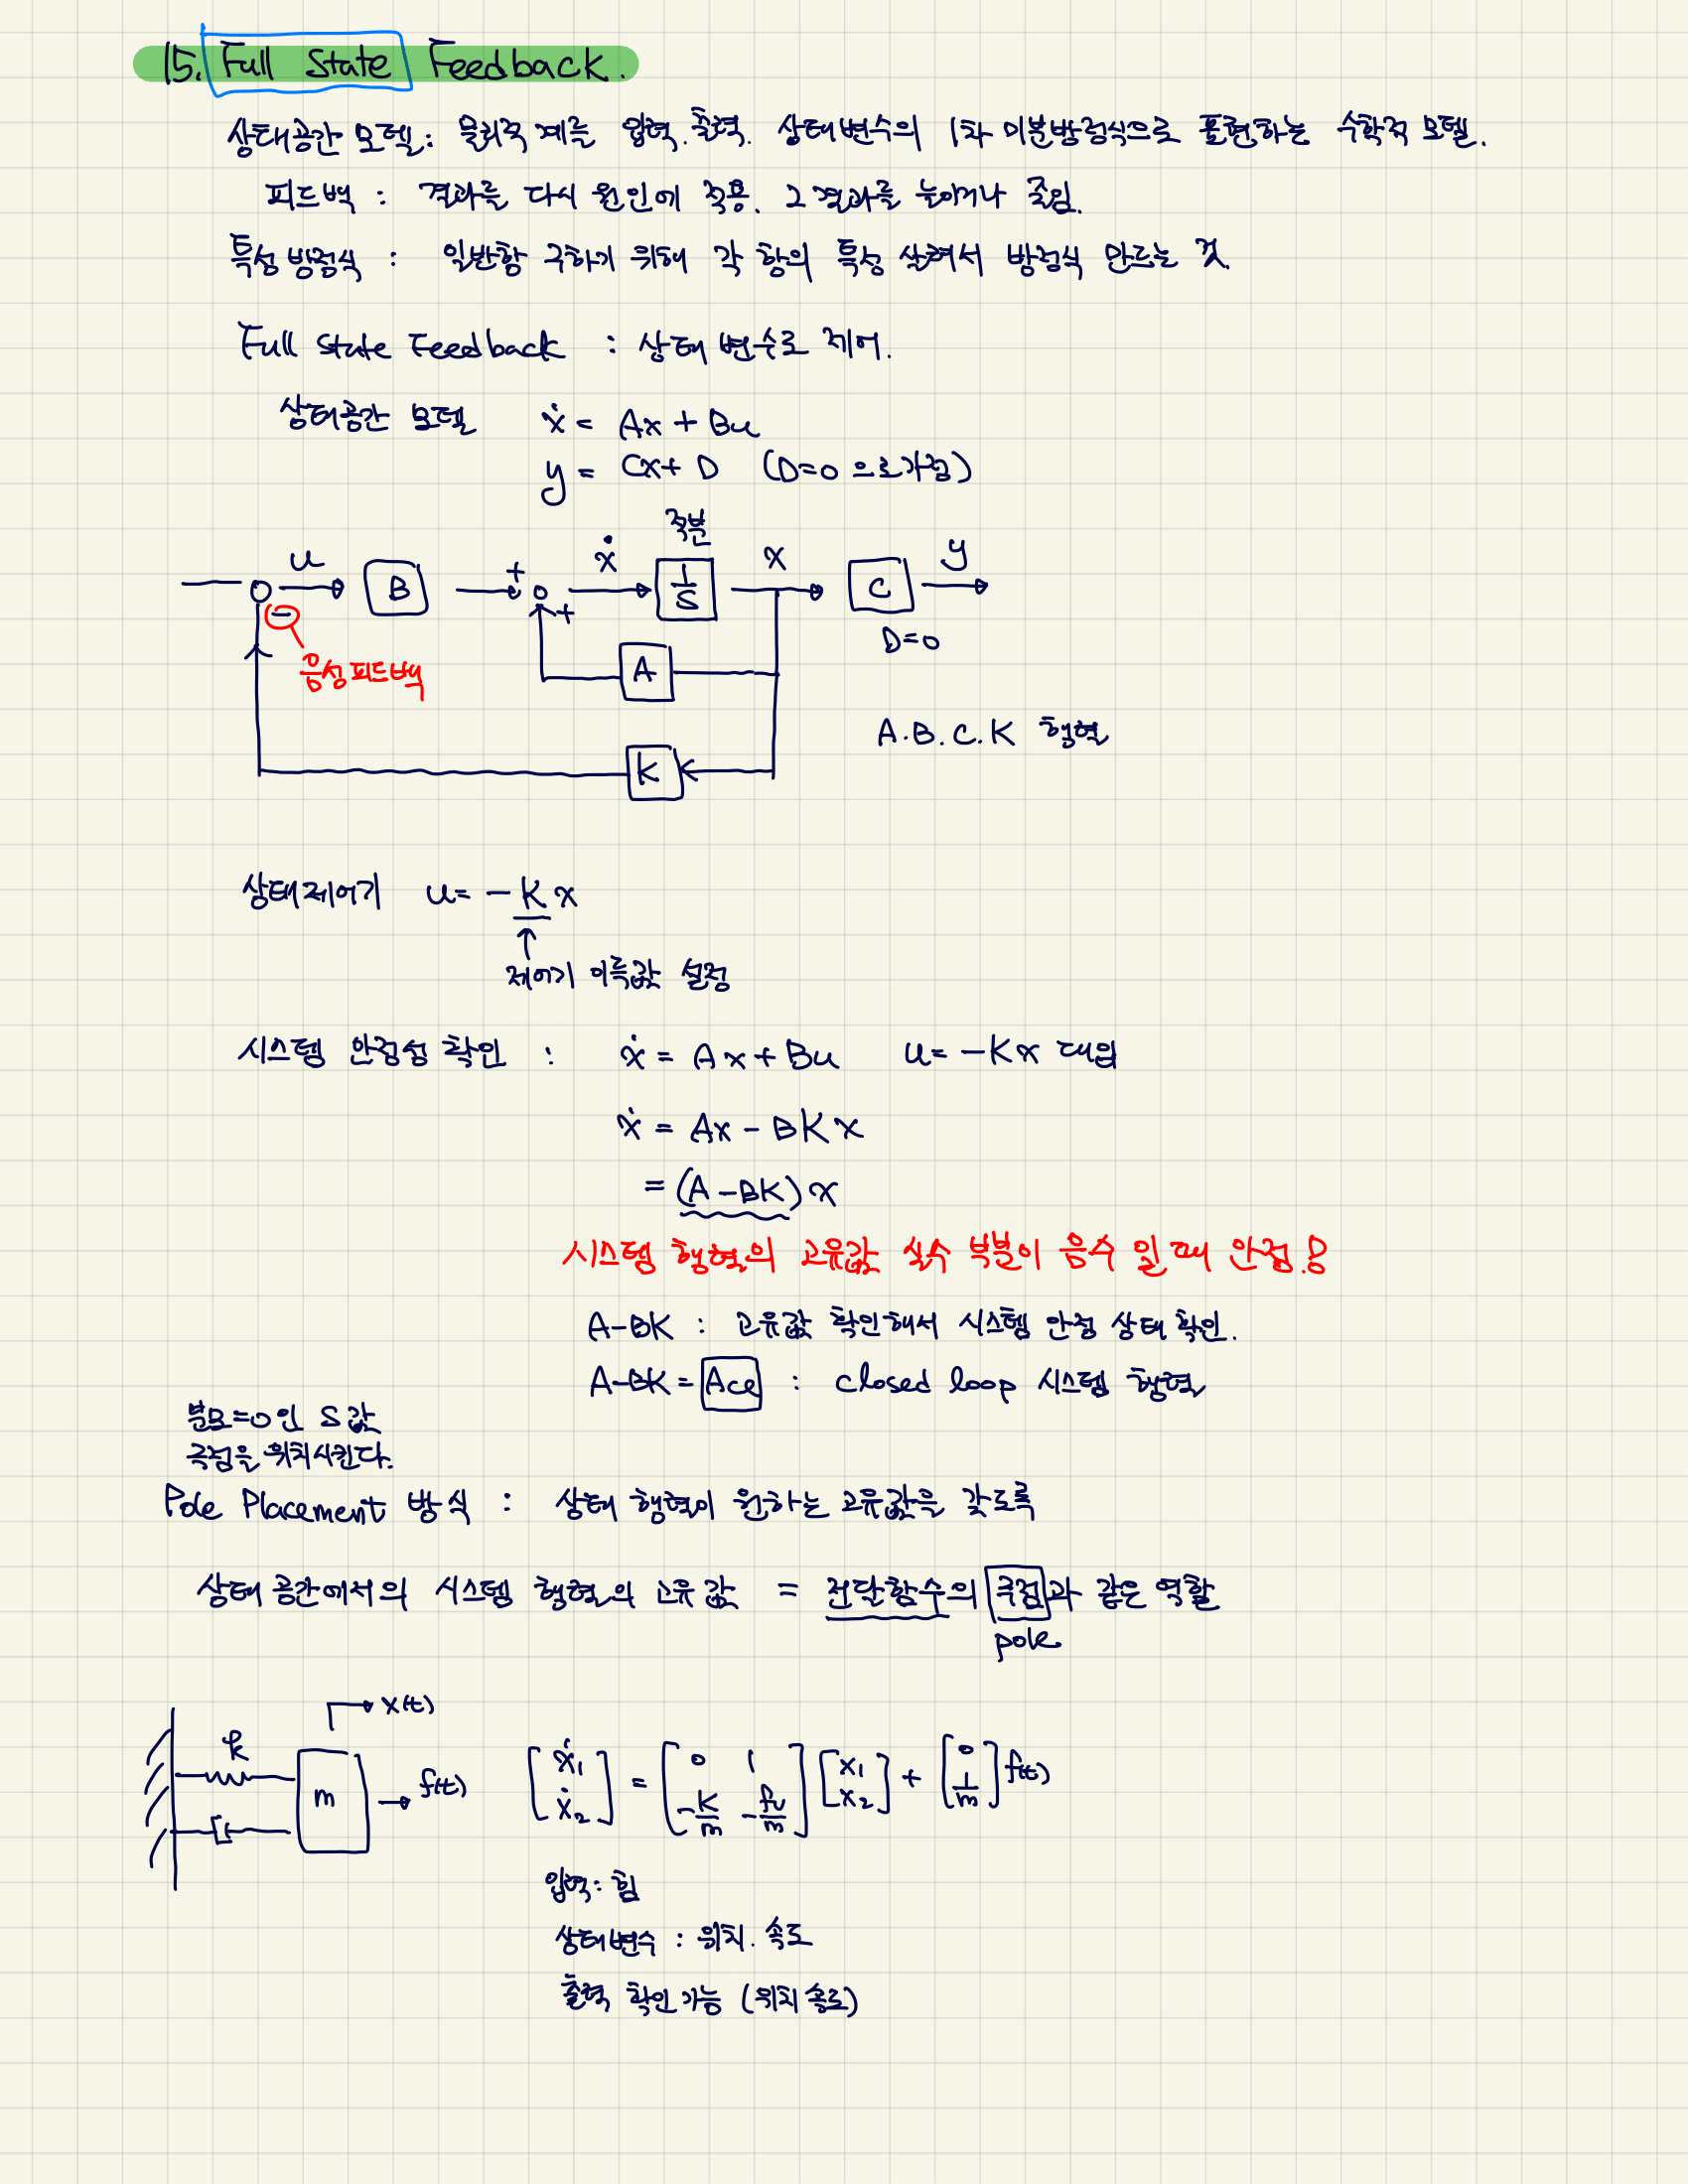 15. Full State Feedback.
상태공간 모델 : 물리적 계를 입력. 출력. 상태변수의 1차 미분방정식으로 표현하는 수학적 모델.
피드백 : 결과를 다시 원인에 적용. 그 결과를 높이거나 줄임.
특성 방정식 : 일반항 구하기 위해 각 항의 특성 살려서 방정식 만드는 것.
Full State Feedback : 상태 변수로 제어.
상태공간 모델 ẋ = Ax + Bu
y = Cx + D (D=0 으로 가정)
적분
u B + + ẋ 1/S x C y
−
음성피드백
A
D=0
A.B.C.K 행렬
K
상태제어기 u = −Kx
↑
제어기 이득값 설정
시스템 안정성 확인 : ẋ = Ax + Bu u = −Kx 대입
ẋ = Ax − BKx
= (A − BK)x
시스템 행렬의 고유값 실수 부분이 음수 일 때 안정.!
A−BK : 고유값 확인해서 시스템 안정 상태 확인.
A−BK = Acl : closed loop 시스템 행렬
분모=0인 S값
극점을 위치시킨다.
Pole Placement 방식 : 상태 행렬이 원하는 고유값을 갖도록
상태 공간에서의 시스템 행렬의 고유 값 = 전달함수의 극점과 같은 역할
pole
x(t)
k
m → f(t)
[ẋ1 ẋ2] = [0 1 −k/m −fv/m] [x1 x2] + [0 1/m] f(t)
입력 : 힘
상태변수 : 위치. 속도
출력 확인 가능 (위치 속도)